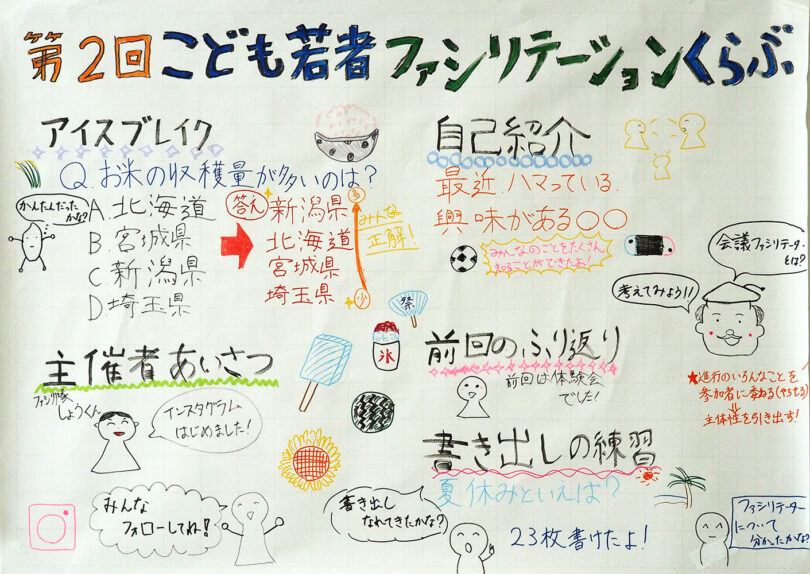 第2回こども若者ファシリテーションくらぶ
アイスブレイク
Q.お米の収穫量が多いのは?
かんたんだったかな?
A.北海道
B.宮城県
C新潟県
D埼玉県
答え
新潟県
北海道
宮城県
埼玉県
多
少
みんな
正解!
主催者あいさつ
しょうくん
インスタグラム
はじめました!
みんな
フォローしてね!
氷
祭
自己紹介
最近、ハマっている、
興味がある〇〇
みんなのことをたくさん
知ることができたよ!
前回のふり返り
前回は体験会
でした!
書き出しの練習
夏休みといえば?
書き出し
なれてきたかな?
23枚書けたよ!
会議ファシリテーター
とは?
考えてみよう!!
★進行のいろんなことを
参加者に委ねる(やらせる)
主体性を引き出す!
ファシリテーター
について
分かったかな?